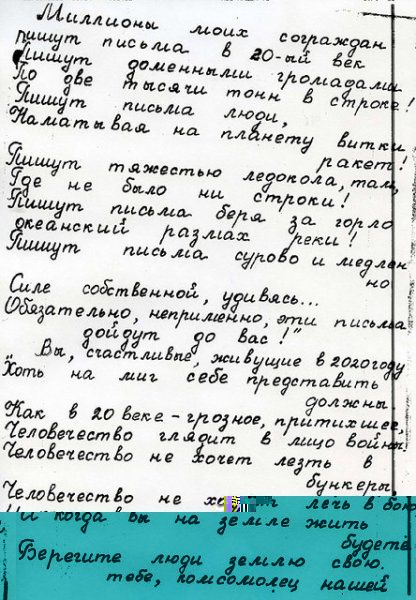 Миллионы моих сограждан
пишут письма в 20-ый век
Пишут доменными громадами
По две тысячи тонн в строке!
Пишут письма люди,
Наматывая на планету витки
ракет!
Пишут тяжестью ледокола, там,
Где не было ни строки!
Пишут письма беря за горло
океанский размах реки!
Пишут письма сурово и медлен
но
Силе собственной, удивясь...
Обязательно, непременно, эти письма
дойдут до вас!"
Вы, счастливые, живущие в 2020 году
"Хоть на миг себе представить
должны.
Как в 20 веке - грозное, притихшее,
Человечество глядит в лицо войны!
Человечество не хочет лезть в
бункеры,
Человечество не лечь в бою
И когда вы на земле жить
будете
Берегите люди землю свою.
тебе, комсомолец нашей